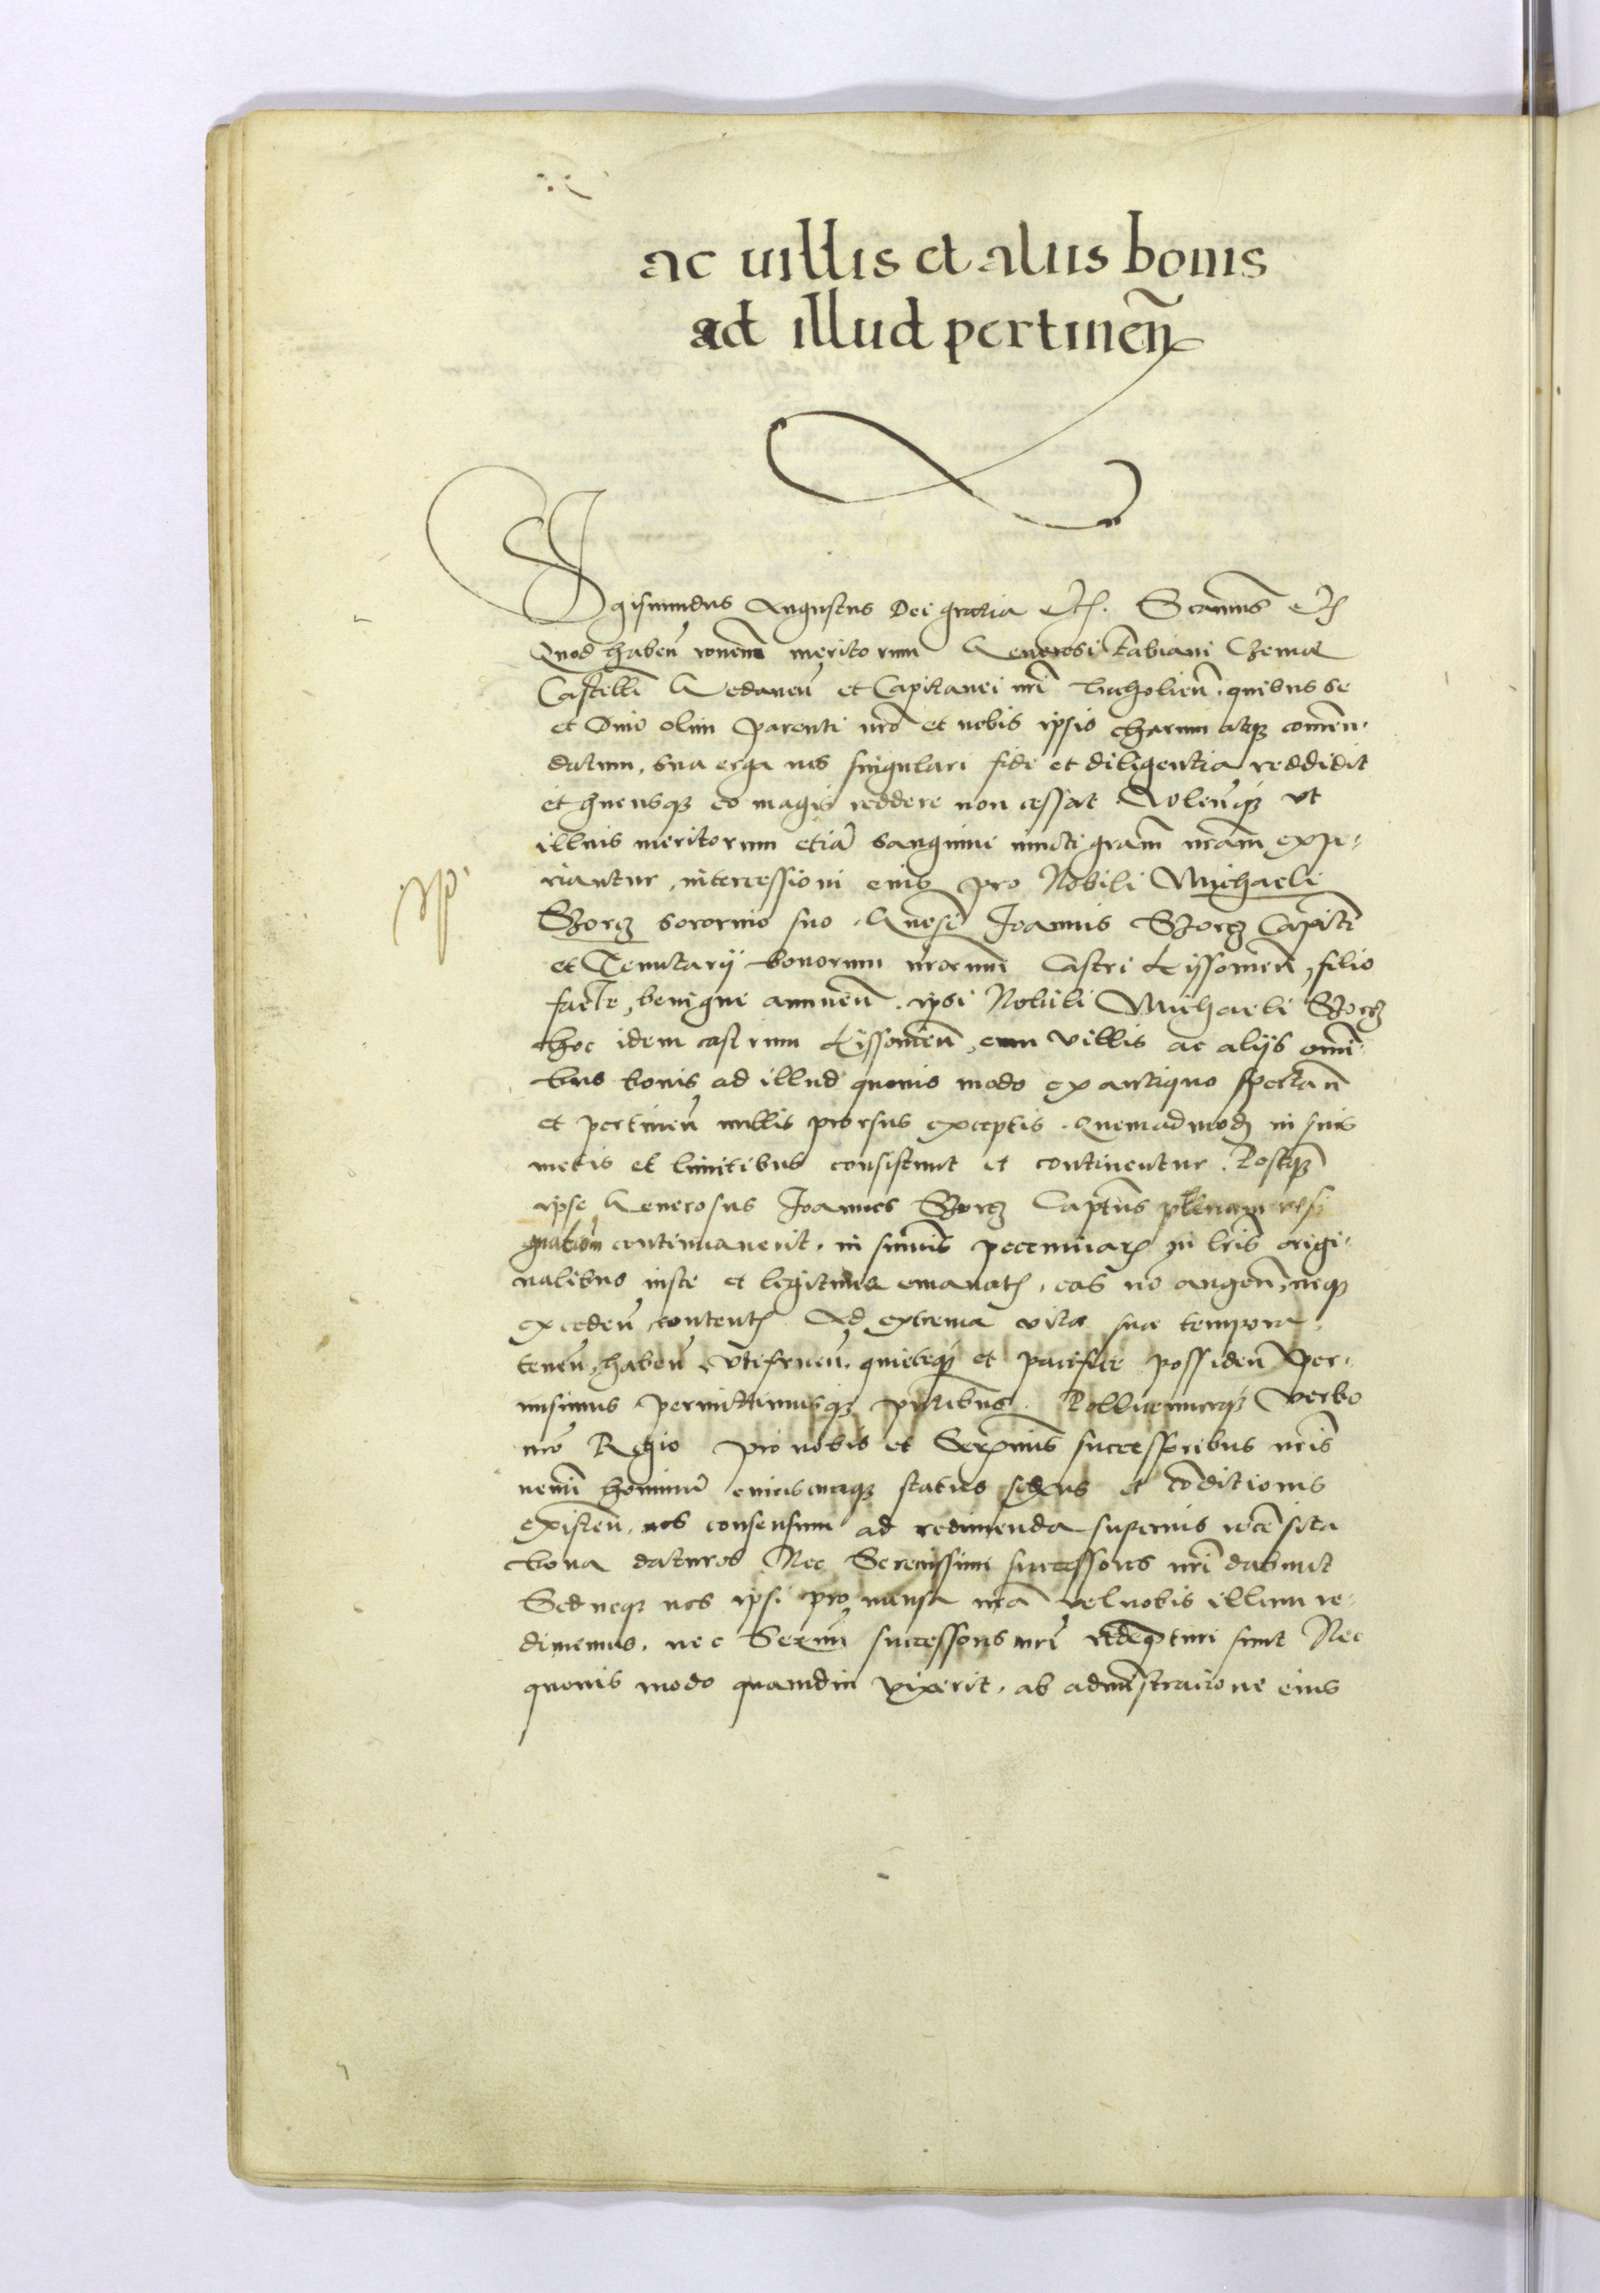 ac uillis et aliis bonis
ad illud pertineñ
Sigismundus Augustus Dei gratia etc. Scimus etc
Quod habeñ meritorum Generosi Fabiani Czema
Castelli Gedaneñ et Capitanei nri Tucholieñ. quibus se
et Diuo olim Parenti nro et nobis ipsis charum atq̃ comen-
datum, sua erga nos singulari fide et diligentia reddidit
et hucusq̃ eo magis reddere non cessat. Volenq̃ ut
illius meritorum etiã sanguine iuncti grãm nrãm expe-
riantur, intercessioni eius pro Nobili Michaeli
Szorcz sororino suo, Gnosi Joannis Szorcz Capitei
et Tenutarij bonorum nrorum Castri Kyssoweñ, filio
facte, benigne annueñ. ipsi Nobili Michaeli Szorcz
hoc idem castrum Kissoweñ, cum villis ac alijs omni-
bus bonis ad illud quouis modo ex antiquo spectañ
et pertineñ nullis prorsus exceptis. Quemadmodũ in suis
metis et limitibus consistunt et continentur. Postq̃
ipse Generosus Joannes Szorcz Captus plenam resi
gnationẽ continuauerit. in summis pecuniar̃ in lris origi-
nalibus iuste et legitime emanat̃, eas nõ augeñ, neq̃
excedeñ contentis. Ad extrema vitæ suæ tempora
teneñ, habeñ, vtifrueñ. quieteq̃ et pacifice possideñ per-
misimus permittimusq̃ pntibus. Pollicemurq̃ verbo
nro Regio pro nobis et Sermis successoribus nris
nemi hominũ cuiuscunq̃ status sexus et cõditionis
existeñ. nos consensum ad redimenda superius recẽsita
bona daturos Nec Serenissimi successores nri dabunt
Sed neq̃ nos ipsi pro mensa nrã vel nobis illum re-
dimemus. nec Sermi successores nri redempturi sunt Nec
quouis modo quamdiu vixerit. ab administratione eius